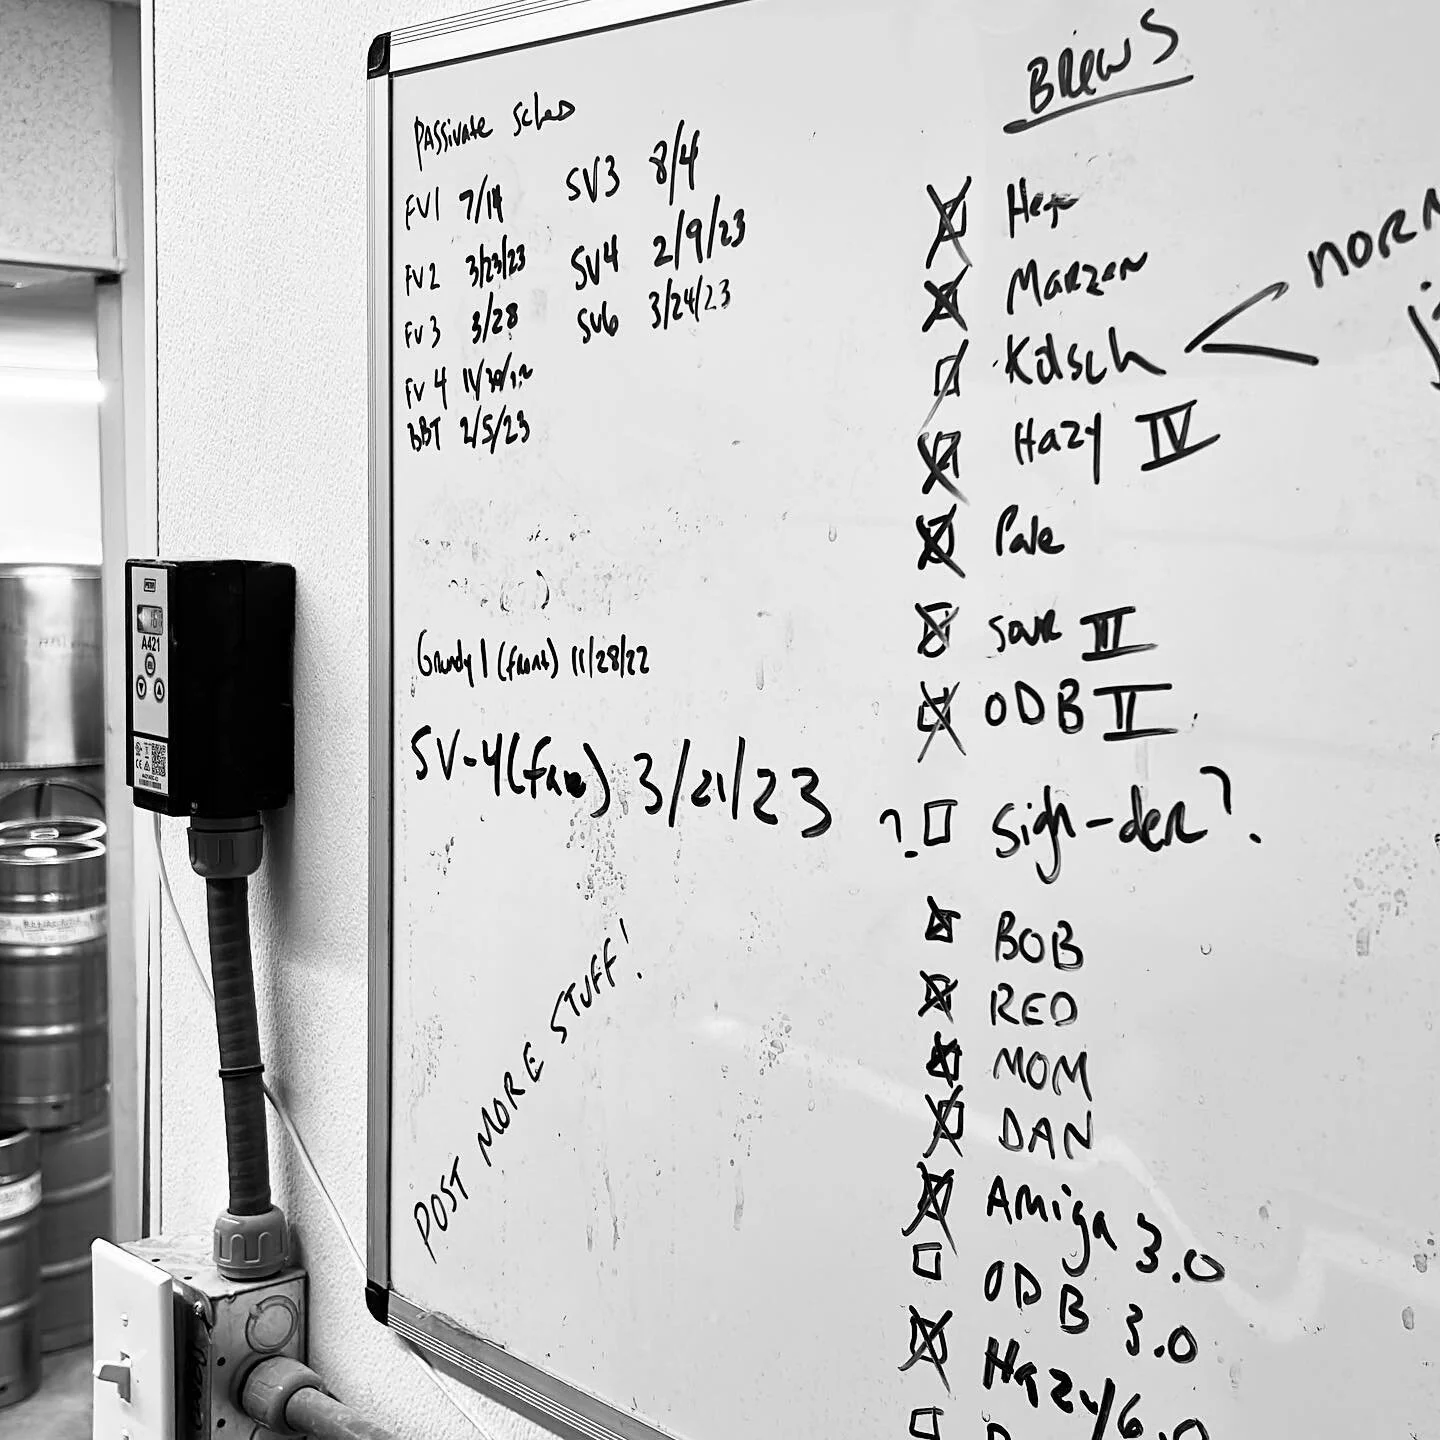 Passivate Sched
FV1 7/14 SV3 8/4
FV2 3/23/23 SV4 2/9/23
FV3 3/28 SV6 3/24/23
FV4 11/30/22
BBT 2/5/23
Grundy 1 (front) 11/28/22
SV-4 (far) 3/21/23
POST MORE STUFF!
BREWS
Hef
Marzen
Kolsch < NORM
Hazy IV
Pale
Sour III
ODB II
? Sigh-der?
BOB
RED
MOM
DAN
Amiga 3.0
ODB 3.0
Hazy 6.0
A421